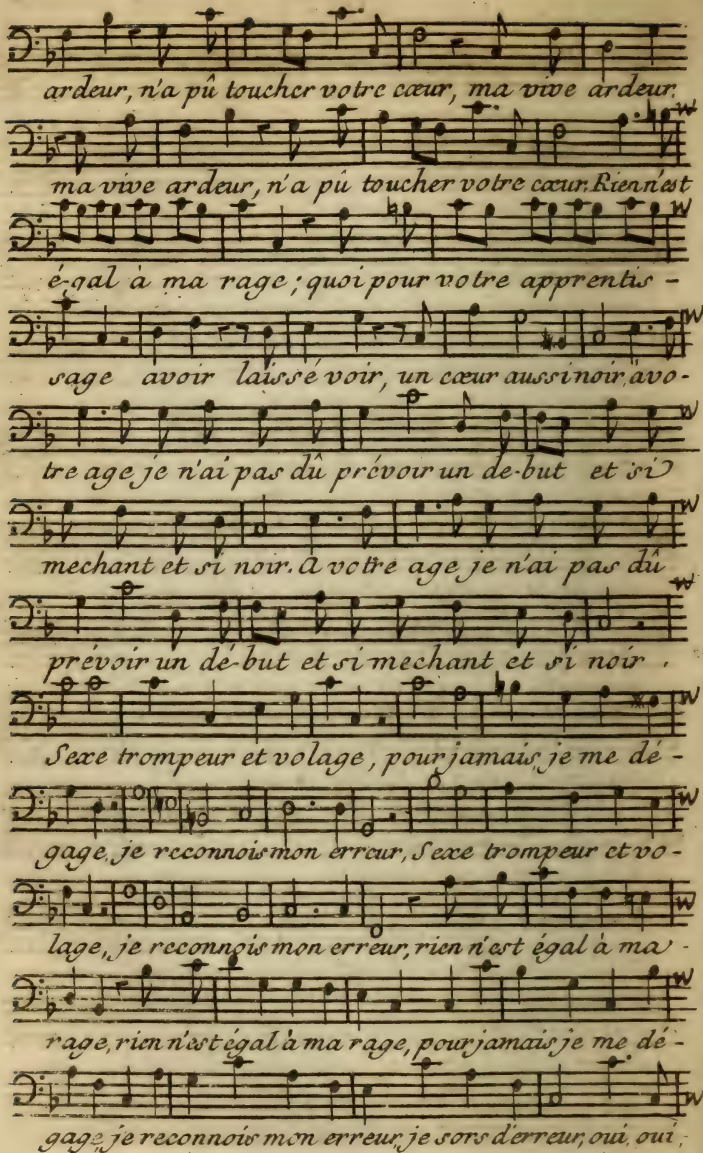 ardeur, n'a pû toucher votre cœur, ma vive ardeur.
ma vive ardeur, n'a pû toucher votre cœur. Rien n'est
é-gal à ma rage; quoi pour votre apprentis-
sage avoir laissé voir, un cœur aussi noir, a vo-
tre age je n'ai pas dû prévoir un de-but et si
mechant et si noir. A votre age je n'ai pas dû
prévoir un dé-but et si mechant et si noir.
Sexe trompeur et volage, pour jamais, je me dé-
gage, je reconnois mon erreur, Sexe trompeur et vo-
lage, je reconnois mon erreur, rien n'est égal à ma
rage, rien n'est égal à ma rage, pour jamais je me dé-
gage, je reconnois mon erreur, je sors d'erreur, oui, oui,